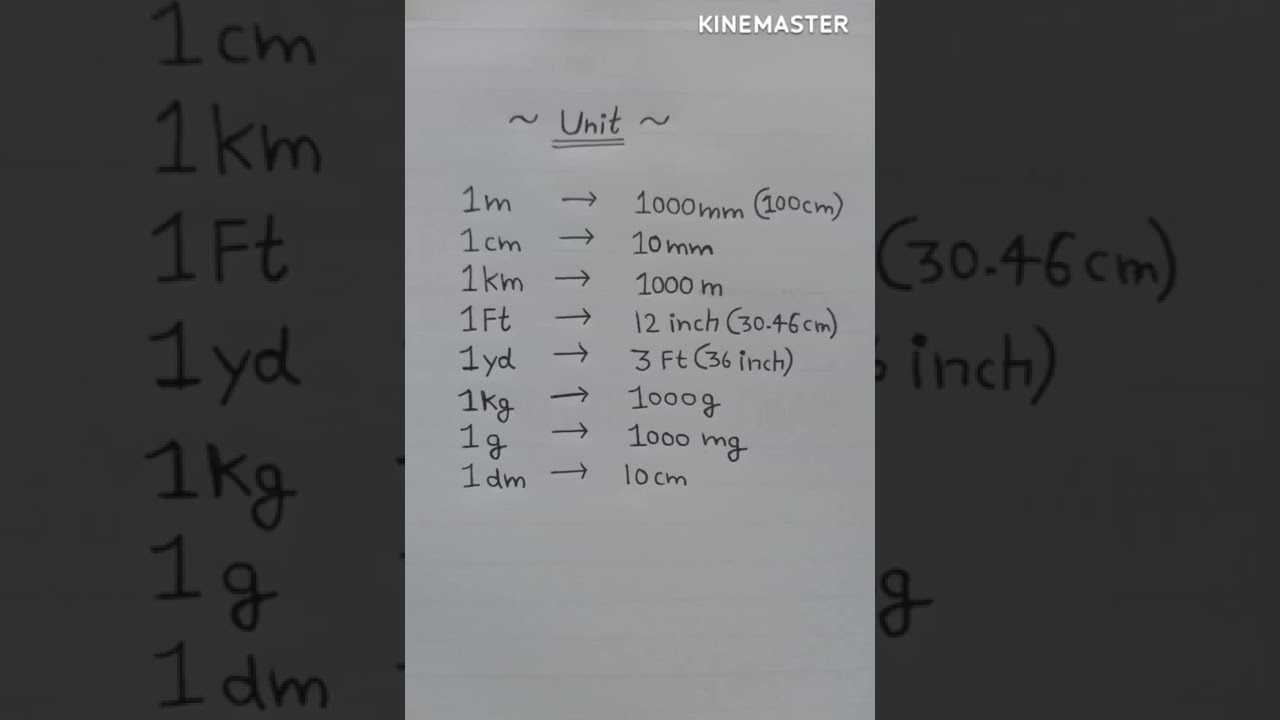 KINEMASTER
~ Unit ~
1m → 1000mm (100cm)
1cm → 10mm
1km → 1000m
1Ft → 12 inch (30.46cm)
1yd → 3 Ft (36 inch)
1kg → 1000g
1g → 1000 mg
1dm → 10cm